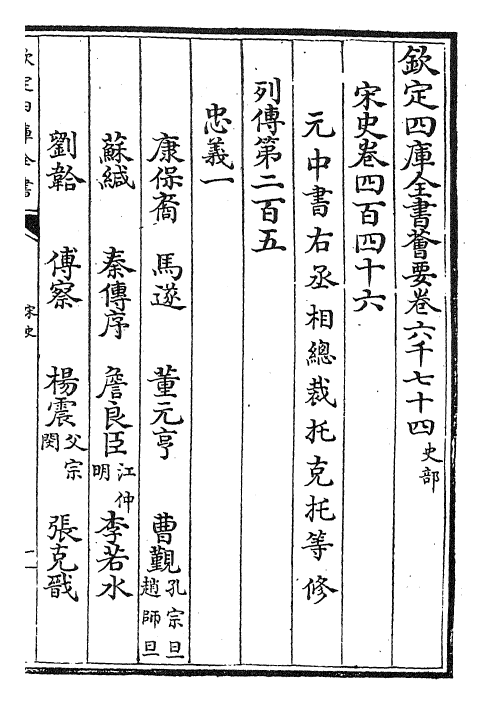 欽定四庫全書薈要卷六千七十四 史部
宋史卷四百四十六
元中書右丞相總裁托克托等修
列傳第二百五
忠義一
康保裔 馬遂 董元亨 曹覲 孔宗旦 趙師旦
蘇緘 秦傳序 詹良臣 江仲明 李若水
劉韐 傅察 楊震 父宗閔 張克戩
欽定四庫全書 宋史 一